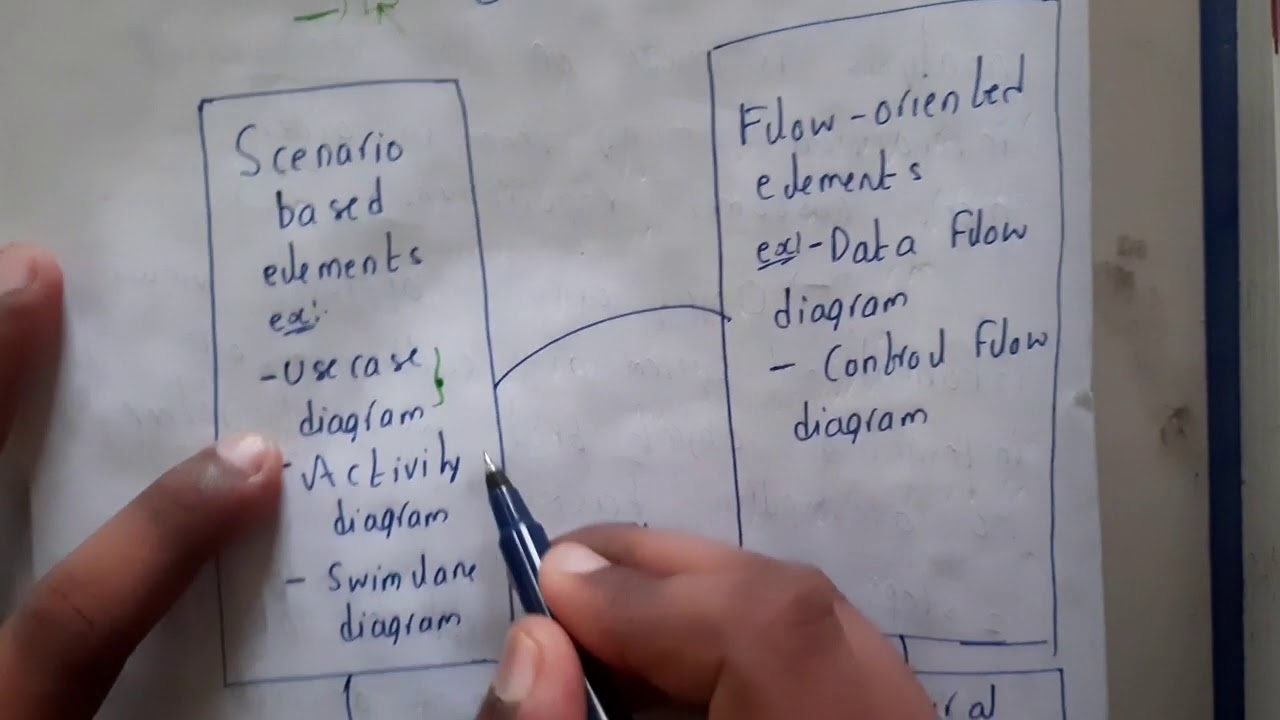 Scenario
based
elements
ex:
- Use case
diagram
- Activity
diagram
- Swimlane
diagram
Flow-oriented
elements
ex:- Data Flow
diagram
- Control Flow
diagram